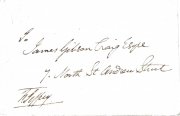 To
James Gibson Craig Esqre
7. North St Andrew Street